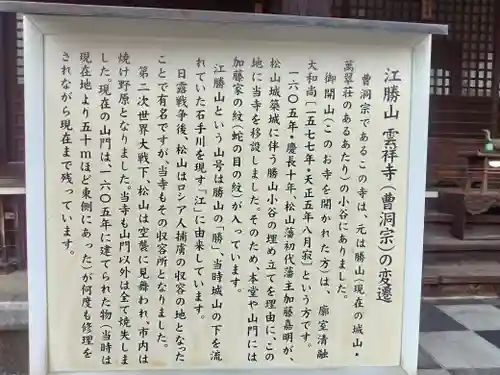 江勝山 雲祥寺(曹洞宗)の変遷
曹洞宗であるこの寺は、元は勝山(現在の城山・
萬翠荘のあるあたり)の小谷にありました。
御開山(このお寺を開かれた方)は、 廓室清融
大和尚[一五七七年・天正五年八月寂]という方です。
一六〇五年・慶長十年、松山藩初代藩主加藤嘉明が、
松山城築城に伴う勝山小谷の埋め立てを理由に、この
地に当寺を移設しました。そのため、本堂や山門には
加藤家の紋(蛇の目の紋)が入っています。
江勝山という山号は勝山の「勝」、当時城山の下を流
れていた石手川を現す「江」に由来しています。
日露戦争後、松山はロシア人捕虜の収容の地となった
ことで有名ですが、当寺もその収容所となりました。
第二次世界大戦下、松山は空襲に見舞われ、市内は
焼け野原となりました。当寺も山門以外は全て焼失しま
した。現在の山門は、一六〇五年に建てられた物(当時は
現在地より五十mほど東側にあった)が何度も修理を
されながら現在まで残っています。